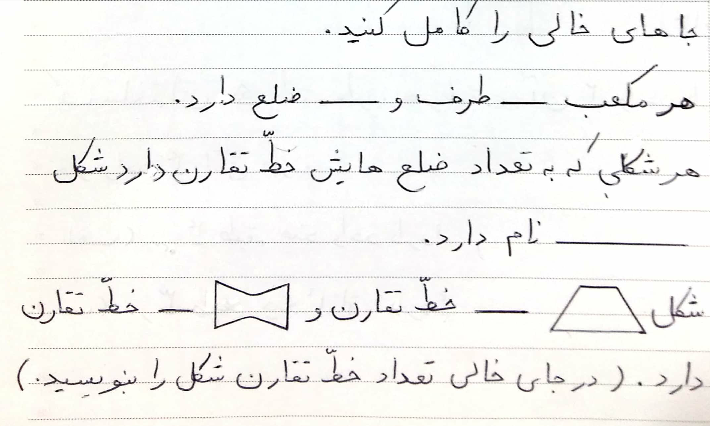 جاهای خالی را کامل کنید.
هر مکعب ___ طرف و ___ ضلع دارد.
هر شکلی که به تعداد ضلع هایش خطّ تقارن دارد شکل
______ نام دارد.
شکل ___ خطّ تقارن و ___ خطّ تقارن
دارد. (در جای خالی تعداد خطّ تقارن شکل را بنویسید.)